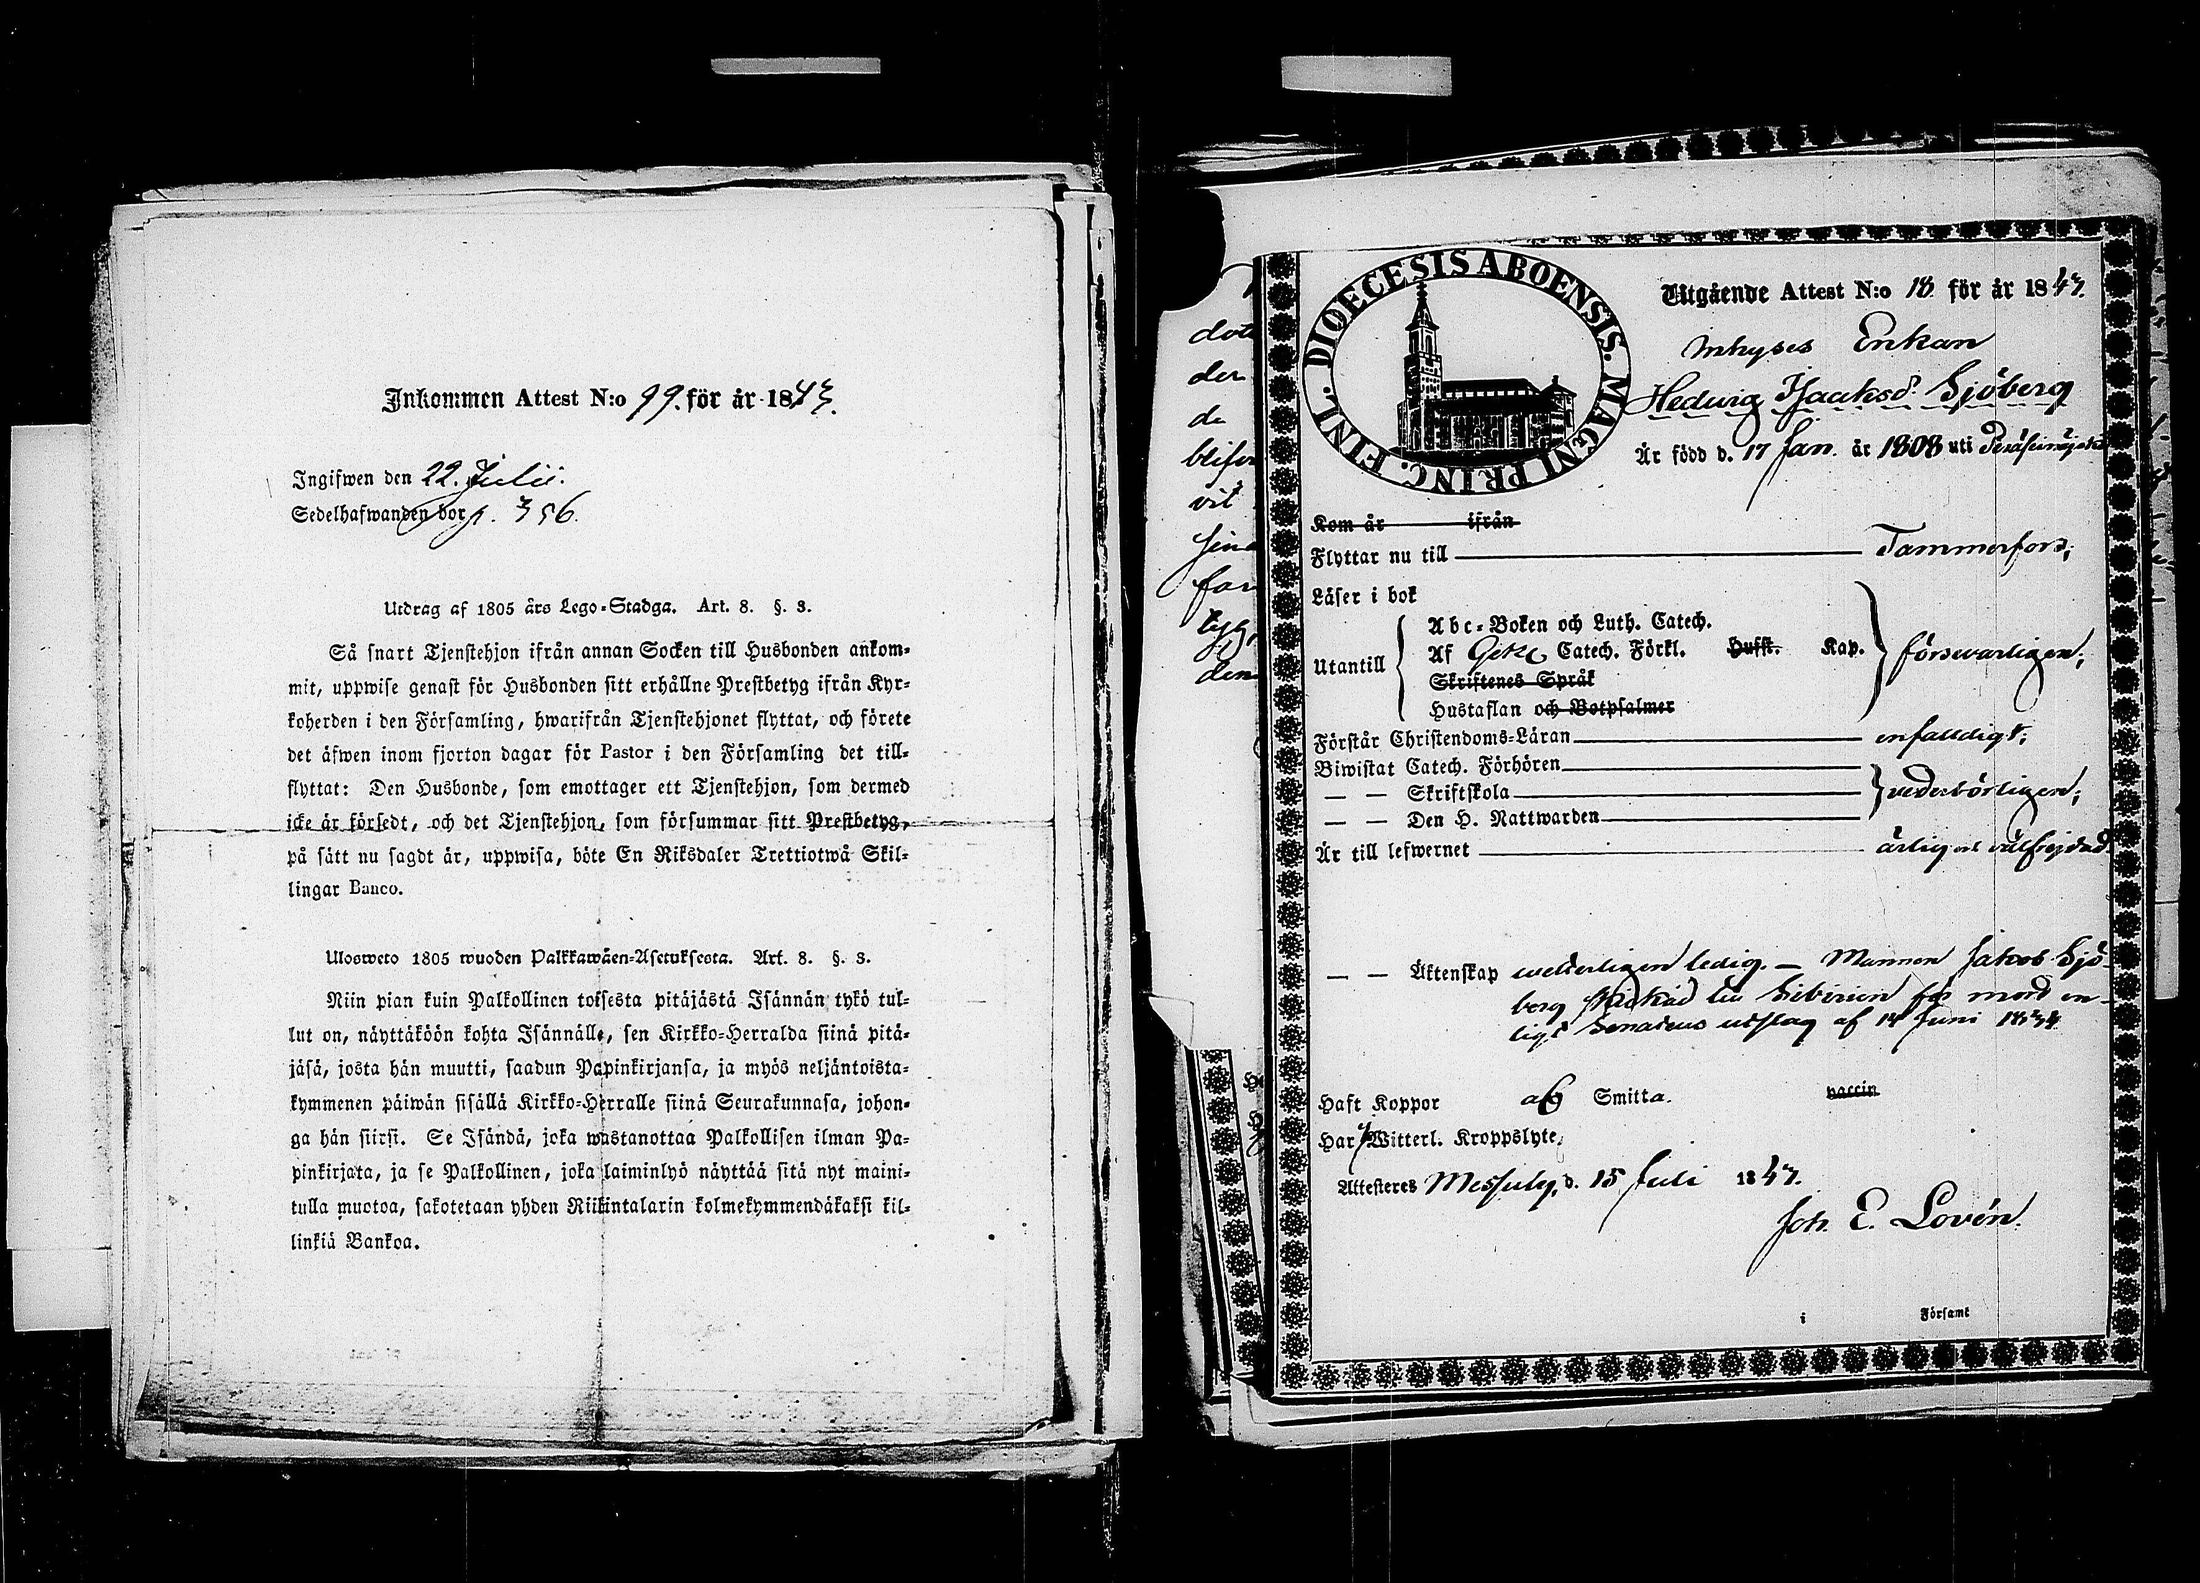 Inkommen Attest N:o 99. för år 1843.
Ingifwen den 22. Julii.
Sedelhafwanden bor p. 356.
Utdrag af 1805 års Lego-Stadga. Art. 8. §. 3.
Så snart Tjenstehjon ifrån annan Socken till Husbonden ankom-
mit, uppwise genast för Husbonden sitt erhållne Prestbetyg ifrån Kyr-
koherden i den Församling, hwarifrån Tjenstehjonet flyttat, och förete
det äfwen inom fjorton dagar för Pastor i den Församling det till-
flyttat: Den Husbonde, som emottager ett Tjenstehjon, som dermed
icke är försedt, och det Tjenstehjon, som försummar sitt Prestbetyg,
på sätt nu sagdt är, uppwisa, böte En Riksdaler Trettiotwå Skil-
lingar Banco.
Ulosweto 1805 wuoden Palkkawäen-Asetuksesta. Art. 8. §. 3.
Niin pian kuin Palkollinen toisesta pitäjästä Isännän tykö tul-
lut on, näyttäköön kohta Isännälle, sen Kirkko-Herralda siinä pitä-
jäsä, josta hän muutti, saadun Papinkirjansa, ja myös neljäntoista-
kymmenen päiwän sisällä Kirkko-Herralle siinä Seurakunnasa, johon-
ga hän siirsi. Se Isändä, joka wastanottaa Palkollisen ilman Pa-
pinkirjata, ja se Palkollinen, joka laiminlyö näyttää sitä nyt maini-
tulla muotoa, sakotetaan yhden Riikintalarin kolmekymmendäkaksi kil-
linkiä Bankoa.
dot
der
de
blifv
vit
sina
far
tyg,
den
DIOECESIS ABOENSIS. MAGNI PRINC. FINL.
Utgående Attest N:o 18. för år 1843.
Inhyses Enkan
Hedwig Isaaksd. Sjöberg
Är född d. 17 Jan. år 1808 uti Peräseinäjoki
Kom år ifrån
Flyttar nu till Tammerfors;
Läser i bok
Utantill
Abc-Boken och Luth. Catech.
Af Catech. Förkl. Hufst. Kap. försvarligen;
Skriftenes Språk
Hustaflan och Botpsalmer
Förstår Christendoms-Läran enfaldigt;
Biwistat Catech. Förhören
— — Skriftskola vederbörligen;
— — Den H. Nattwarden
Är till lefwernet ärlig och välfrejdad.
— — Äktenskap wetterligen ledig. — Mannen Jakob Sjö-
berg skickad till Sibirien för mord en-
ligt Senatens utslag af 14 Juni 1834
Haft Koppor af Smitta. vaccin
Har Witterl. Kroppslyte,
Attesteres Messuby, d. 15 Juli 1843.
Joh. E. Lovén.
i Församl